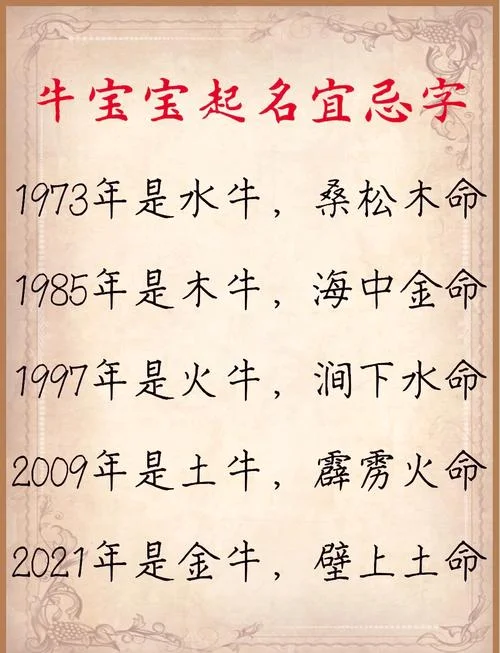 牛宝宝起名宜忌字
1973年是水牛，桑松木命
1985年是木牛，海中金命
1997年是火牛，涧下水命
2009年是土牛，霹雳火命
2021年是金牛，壁上土命